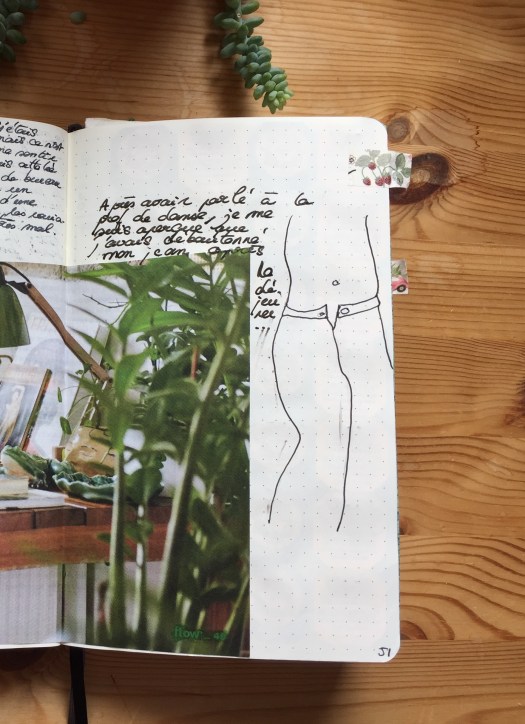 j'étais
mais ce n'est
me sentir
de bureau
un
d'une
très mal.
Après avoir parlé à la
prof de danse, je me
suis aperçue que
j'avais déboutonné
mon jean après
le
dé-
jeu
ner
...
flow_ 46
51